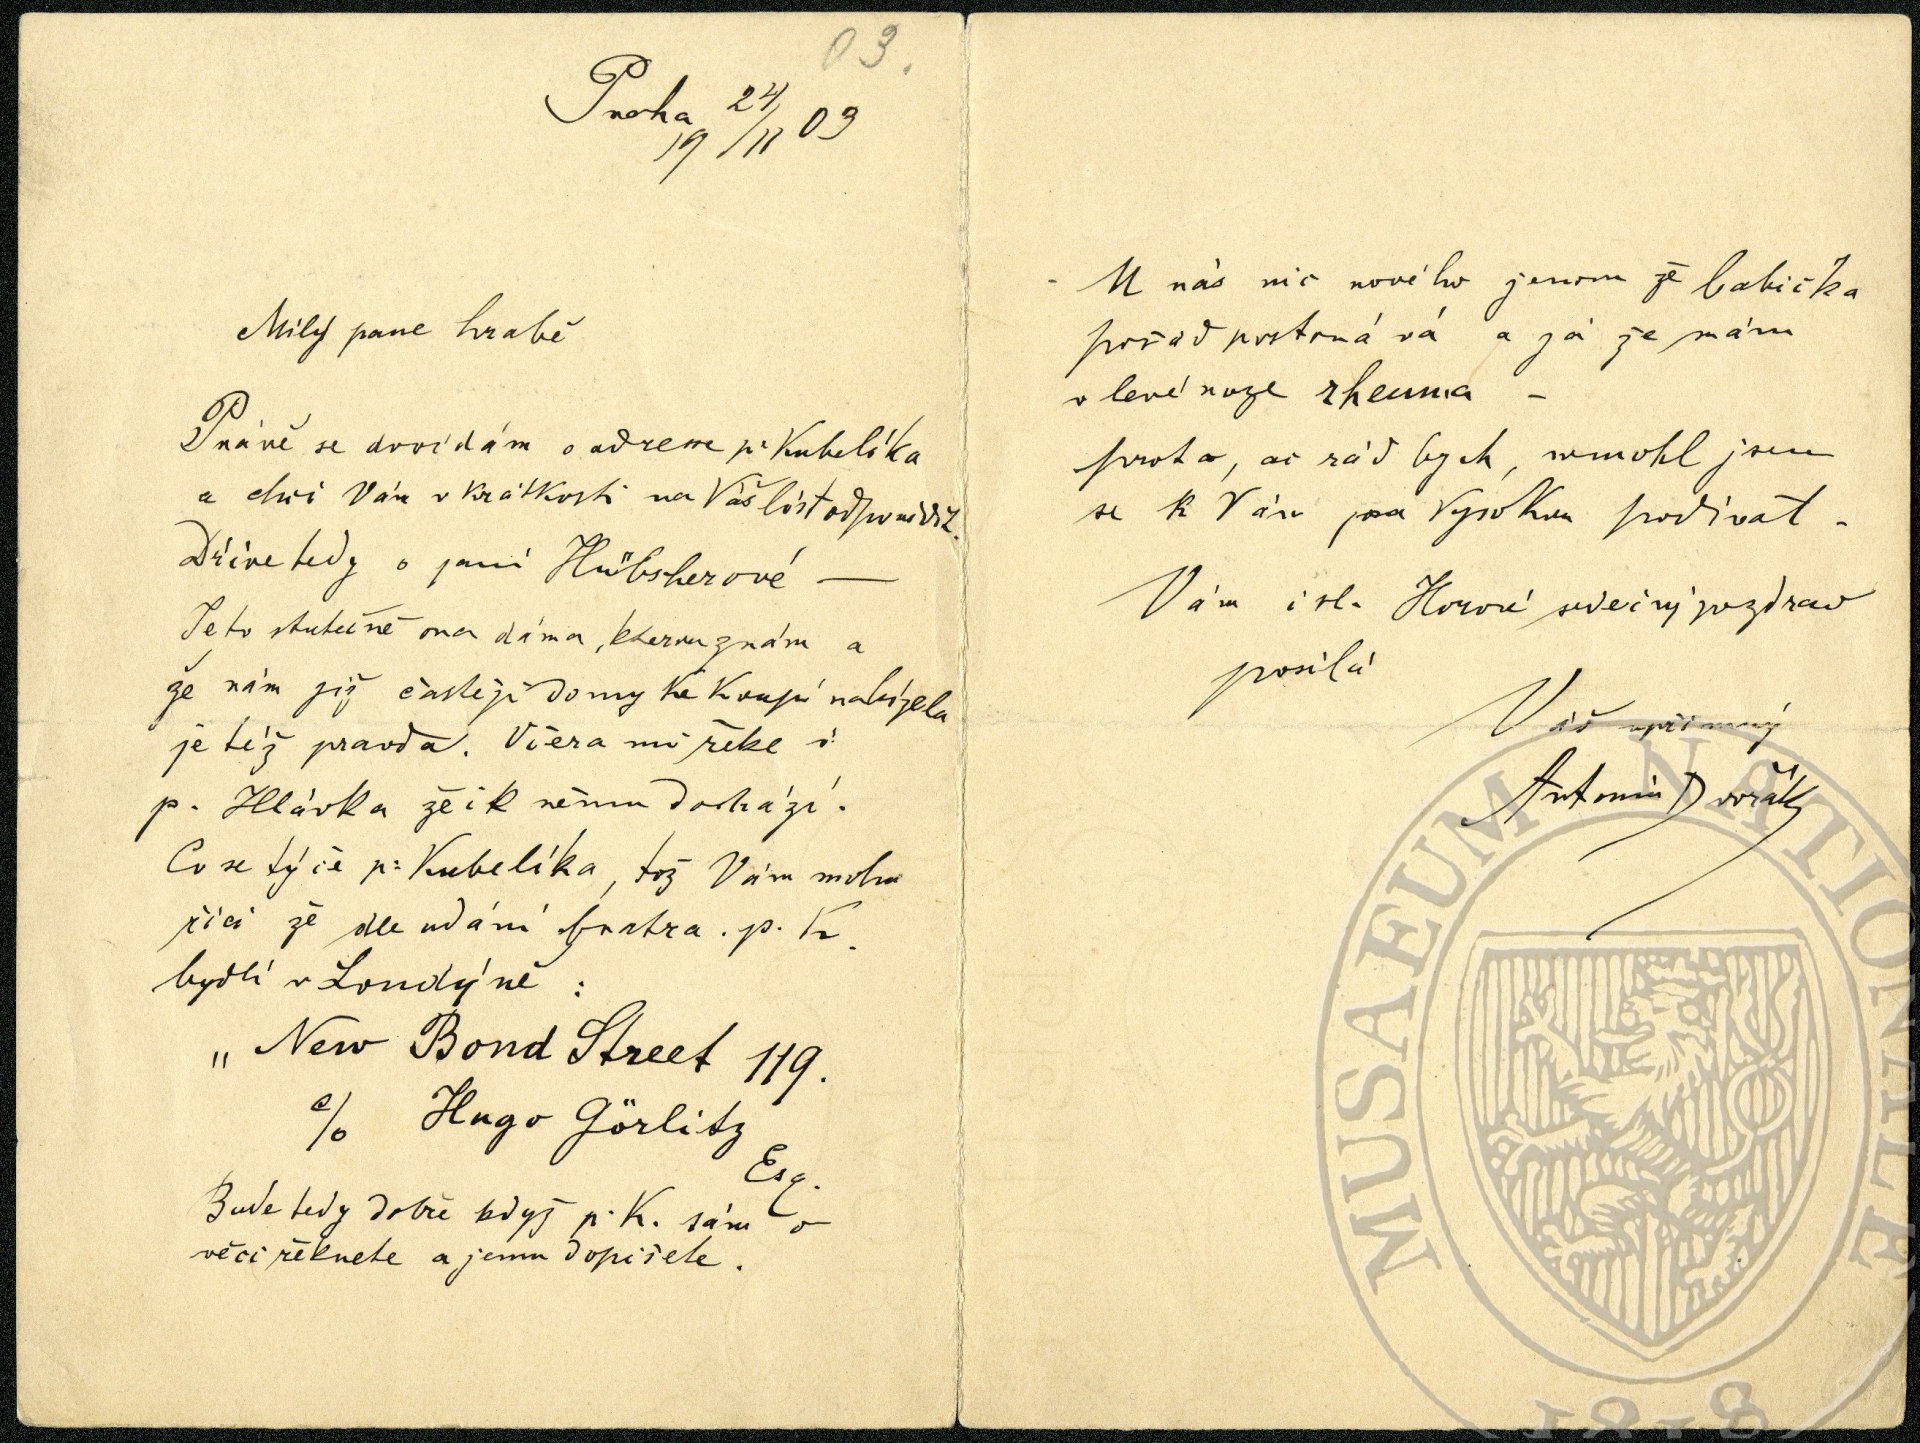 03.
Praha 24/11 03
19
Milý pane hrabě
Právě se dovídám o adresse p. Kubelíka
a chci Vám v krátkosti na Váš list odpovědít.
Dříve tedy o paní Hübsherové —
Je to skutečně ona dáma, kterou znám a
že nám již častěji domy ke koupi nabízela
je též pravda. Včera mi řekl i
p. Hlávka že i k němu dochází.
Co se týče p. Kubelíka, tož Vám mohu
říci že dle udání bratra p. K.
bydlí v Londýně :
„ New Bond Street 119.
c/o Hugo Görlitz
Esq.
Bude tedy dobře když p. K. sám o
věci řeknete a jemu dopišete.
U nás nic nového jenom že babička
pořád postonává a já že mám
v levé noze rheuma –
proto, ač rád bych, nemohl jsem
se k Vám na Vysokou podívat -
Vám i sl. Horové srdečný pozdrav
posílá
Váš upřímný
Antonín Dvořák
MUSAEUM NATIONALE
1818